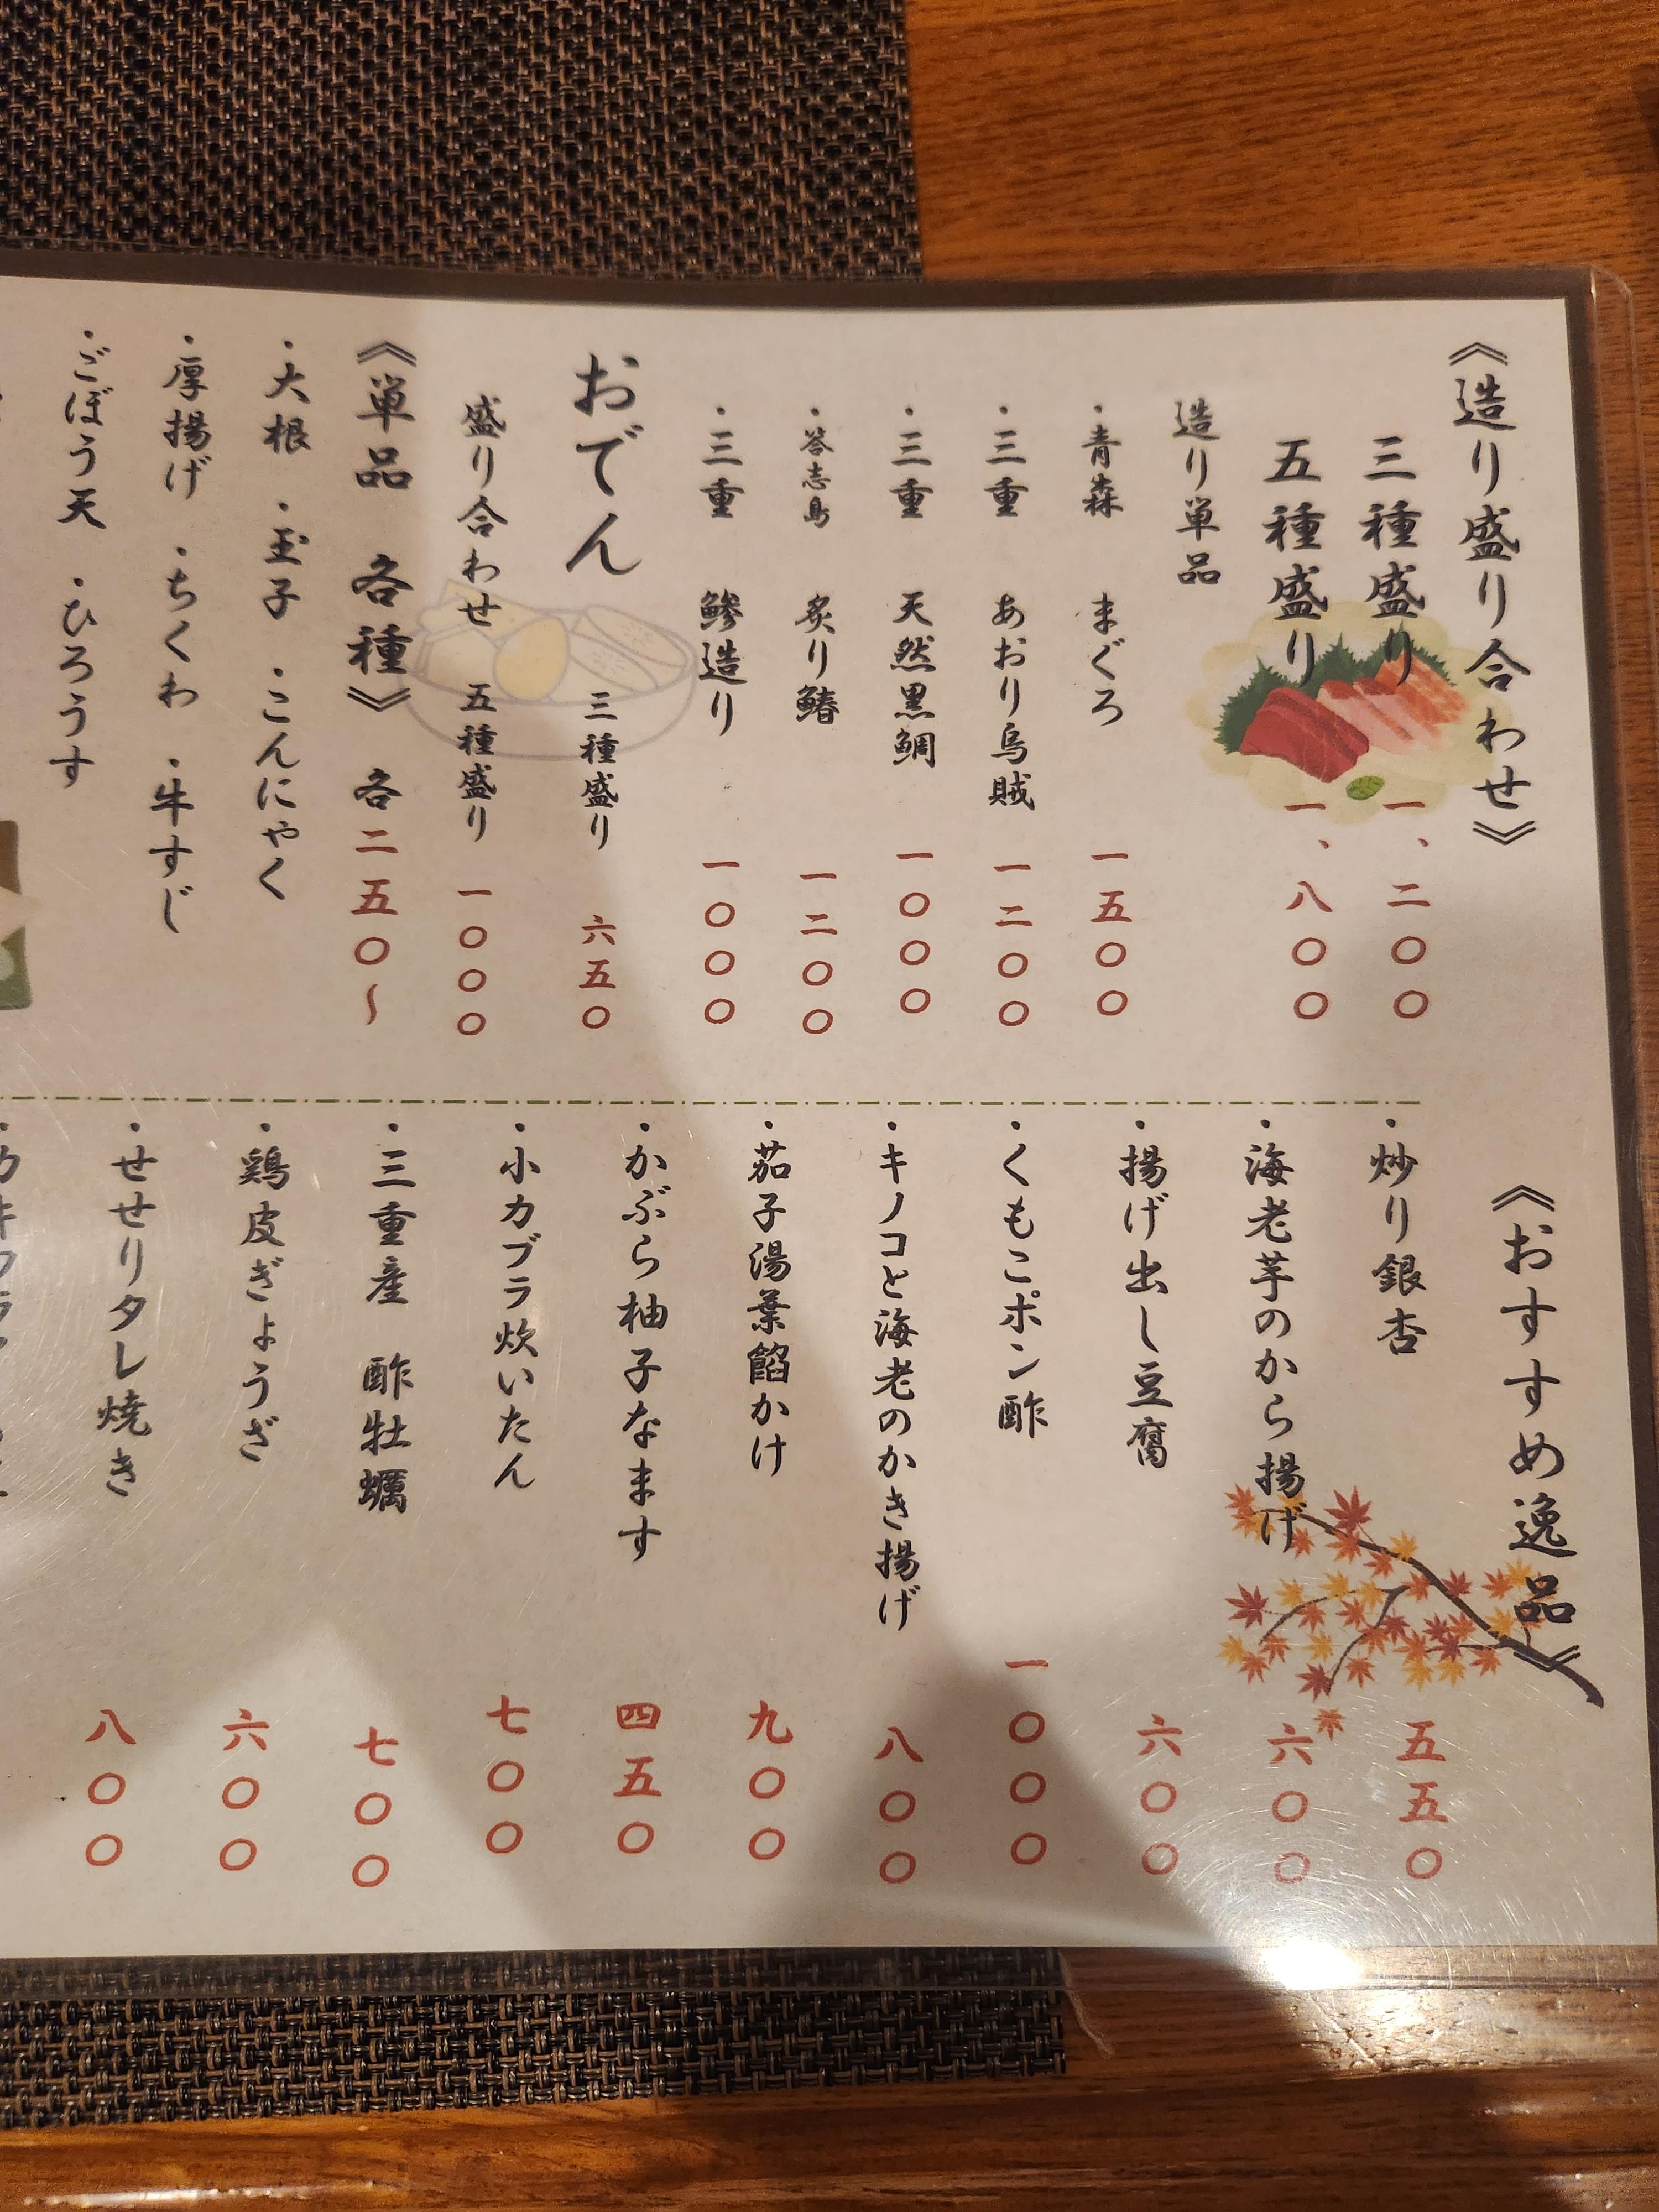 《造り盛り合わせ》
三種盛り 一、二〇〇
五種盛り 一、八〇〇
造り単品
・青森 まぐろ 一五〇〇
・三重 あおり烏賊 一二〇〇
・三重 天然黒鯛 一〇〇〇
・答志島 炙り鰆 一二〇〇
・三重 鰺造り 一〇〇〇
おでん 三種盛り 六五〇
盛り合わせ 五種盛り 一〇〇〇
《単品 各種》 各二五〇～
・大根 ・玉子 ・こんにゃく
・厚揚げ ・ちくわ ・牛すじ
・ごぼう天 ・ひろうす
《おすすめ逸品》
・炒り銀杏 五五〇
・海老芋のから揚げ 六〇〇
・揚げ出し豆腐 六〇〇
・くもこポン酢 一〇〇〇
・キノコと海老のかき揚げ 八〇〇
・茄子湯葉餡かけ 九〇〇
・かぶら柚子なます 四五〇
・小カブラ炊いたん 七〇〇
・三重産 酢牡蠣 七〇〇
・鶏皮ぎょうざ 六〇〇
・せせりタレ焼き 八〇〇